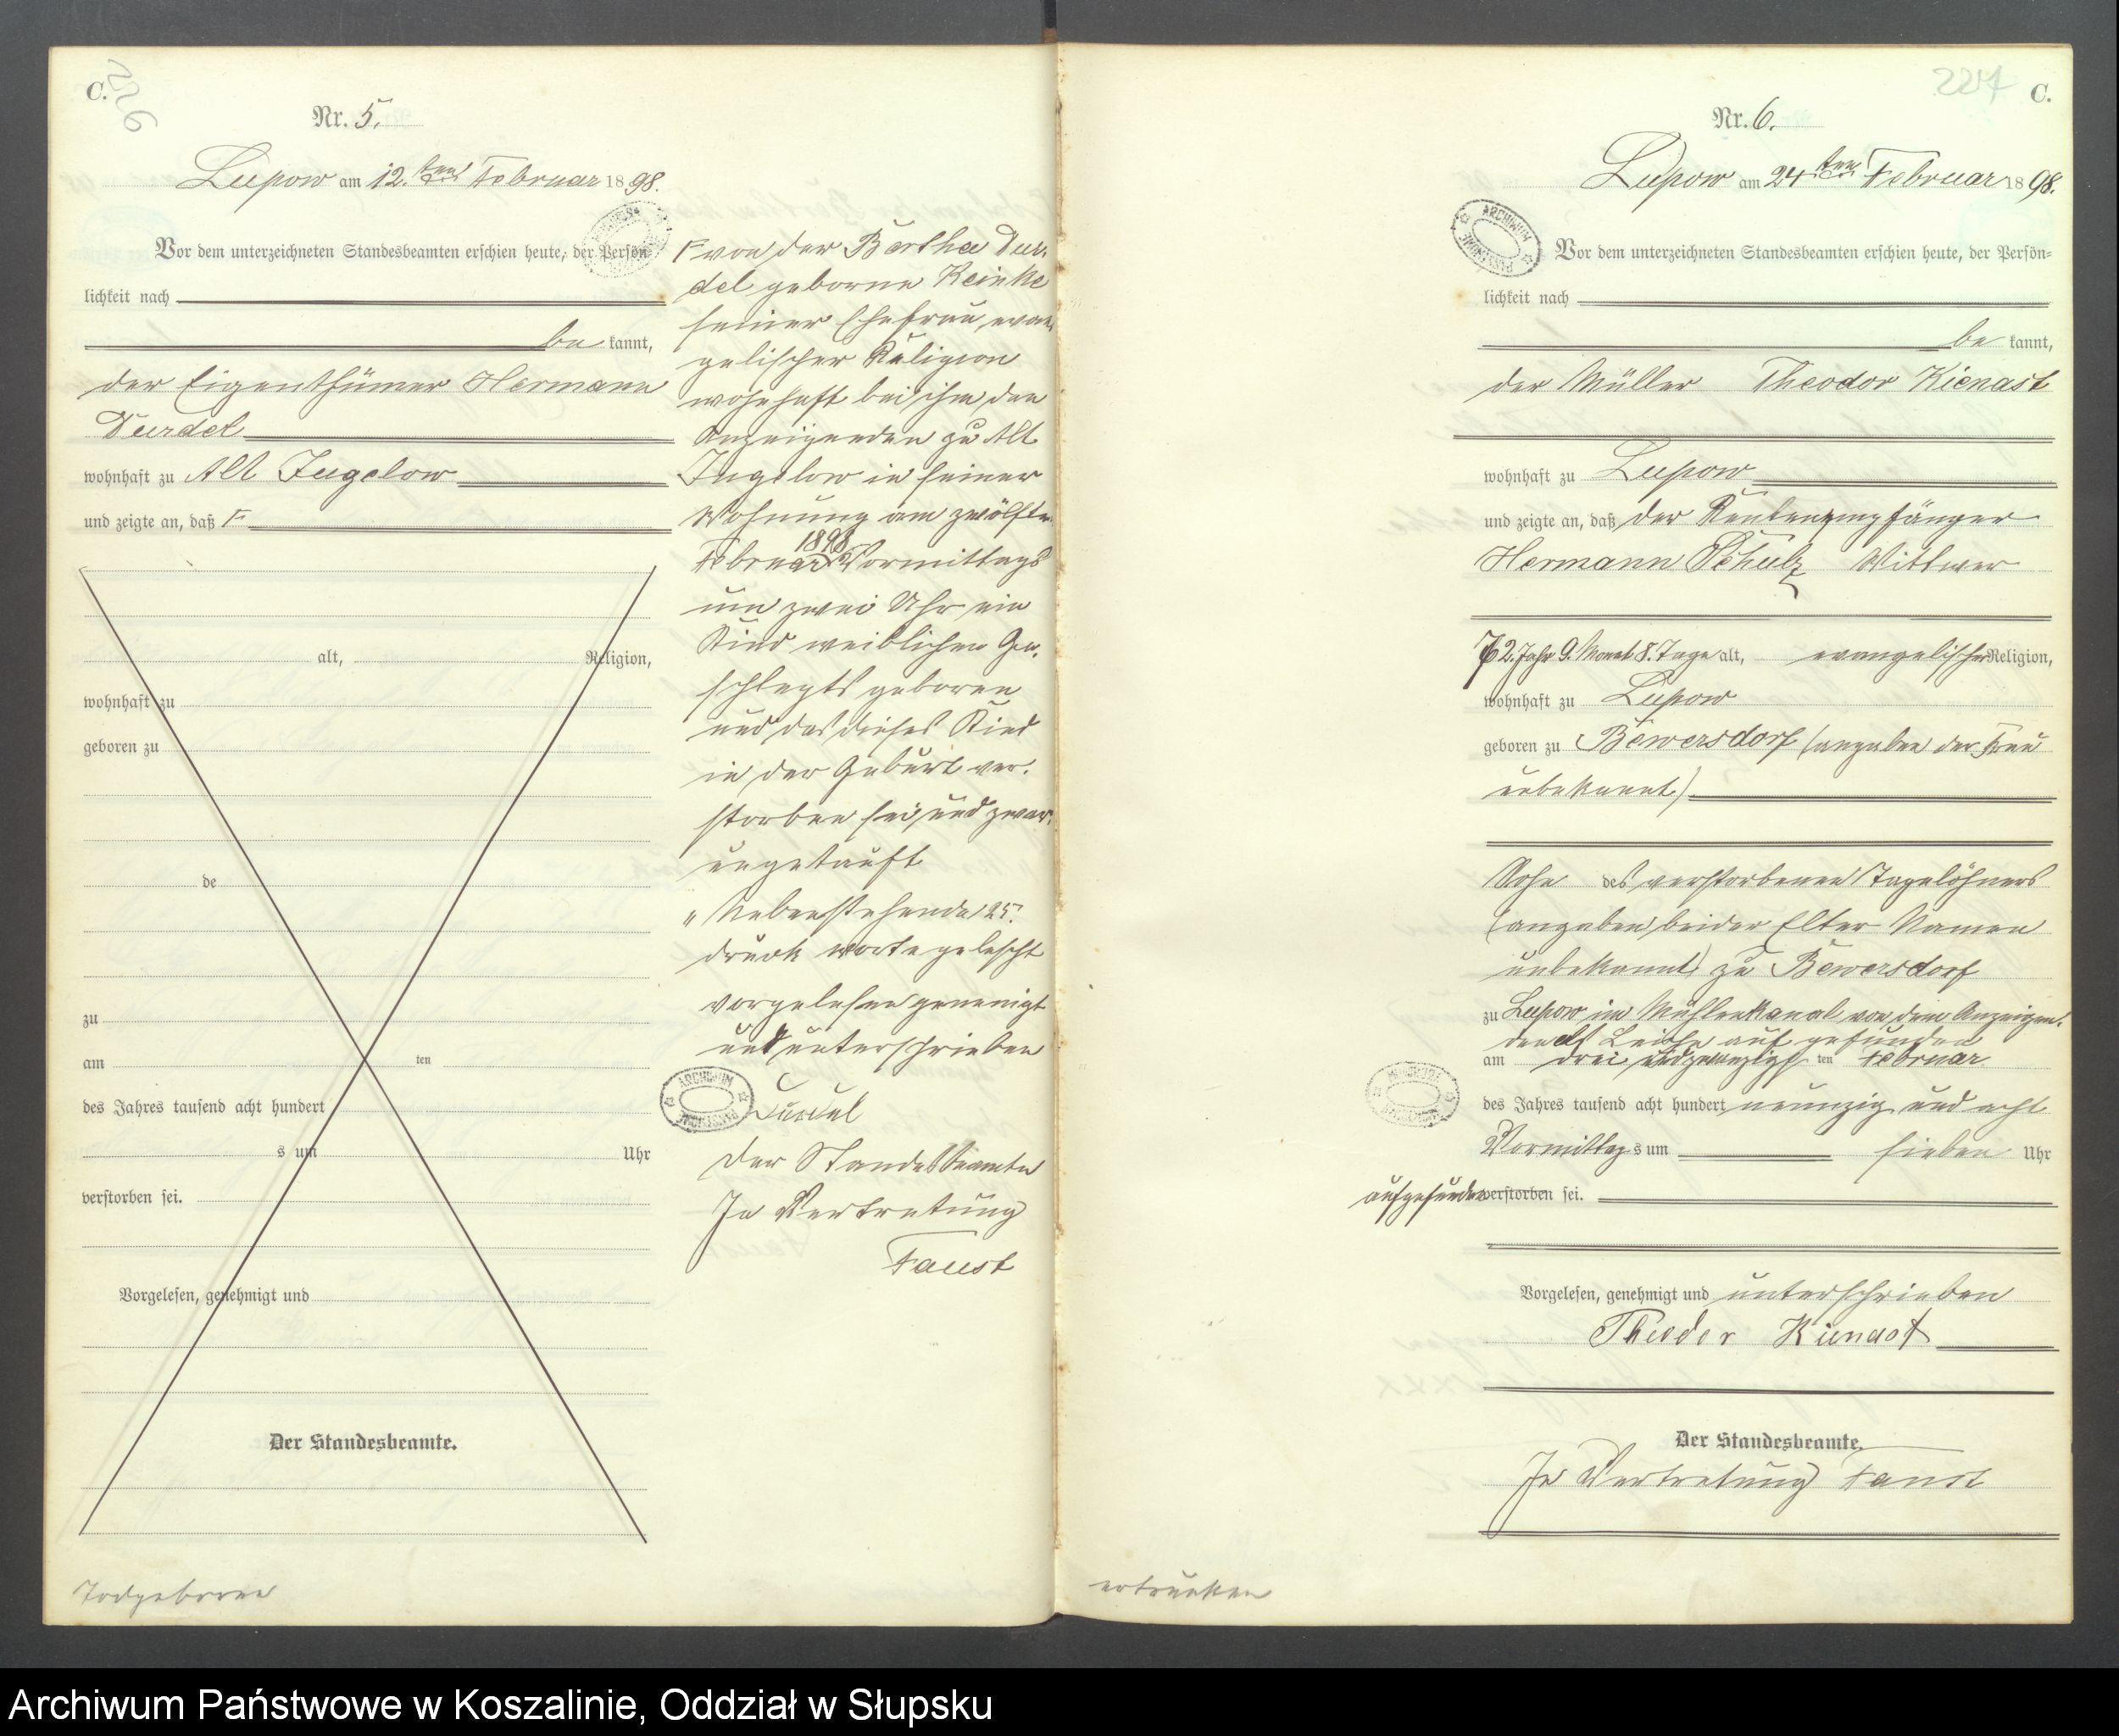 C.
226
Nr. 5.
Lupow am 12. ten Februar 1898.
Vor dem unterzeichneten Standesbeamten erschien heute, der Persön-
lichkeit nach
be kannt,
der Eigenthümer Hermann
Durdel
wohnhaft zu Alt Jugelow
und zeigte an, daß F
alt, Religion,
wohnhaft zu
geboren zu
de
zu
am ten
des Jahres tausend acht hundert
s um Uhr
verstorben sei.
Vorgelesen, genehmigt und
Der Standesbeamte.
Todgeboren
F von der Bertha Dur-
del geborne Reinke
seiner Ehefrau, evan-
gelischer Religion
wohnhaft bei ihm, den
Anzeigenden zu Alt
Jugelow in seiner
Wohnung am zwölften
Februar 1898 Vormittags
um zwei Uhr ein
Kind weiblichen Ge-
schlegts geboren
und das dieses Kind
in der Geburt ver-
storben sei, und zwar
ungetauft
" Nebenstehende 25.
druck worte gelescht
vorgelesen genemigt
und unterschrieben
Durdel
Der Standesbeamte
In Vertretung
Faust
ARCHIWUM
224
C.
Nr. 6.
Lupow am 24 ten Februar 1898.
ARCHIWUM
Vor dem unterzeichneten Standesbeamten erschien heute, der Persön-
lichkeit nach
be kannt,
der Müller Theodor Kienast
wohnhaft zu Lupow
und zeigte an, daß der Rentenempfänger
Hermann Schulz Wittwer
72. Jahr 9. Monat 8. Tage alt, evangelischer Religion,
wohnhaft zu Lupow
geboren zu Bewersdorf (angaben der Frau
unbekannt)
Sohn des verstorbenen Tagelöhners
(angaben beider Elter Namen
unbekannt) zu Bewersdorf
zu Lupow im Mühlenkanal von dem Anzeigen-
den als Leiche auf gefunden
am drei und zwanzigs ten Februar
des Jahres tausend acht hundert neunzig und acht
Vormittag s um sieben Uhr
aufgefunden verstorben sei.
Vorgelesen, genehmigt und unterschrieben
Theodor Kienast
Der Standesbeamte.
In Vertretung Faust
ertrunken
Archiwum Państwowe w Koszalinie, Oddział w Słupsku